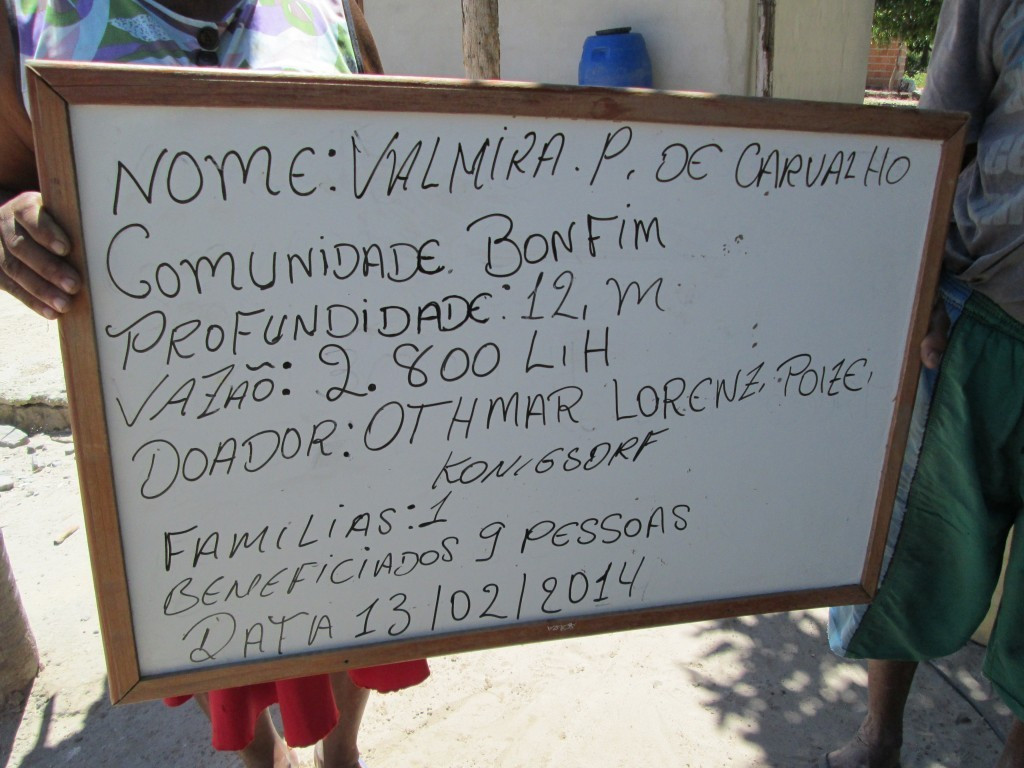 NOME: VALMIRA. P. DE CARVALHO
COMUNIDADE. BONFIM
PROFUNDIDADE: 12, m
VAZÃO: 2.800 L i H
DOADOR: OTHMAR LORENZ, POIZE,
KONIGSDRF
FAMILIAS: 1
BENEFICIADOS 9 PESSOAS
DATA 13/02/2014